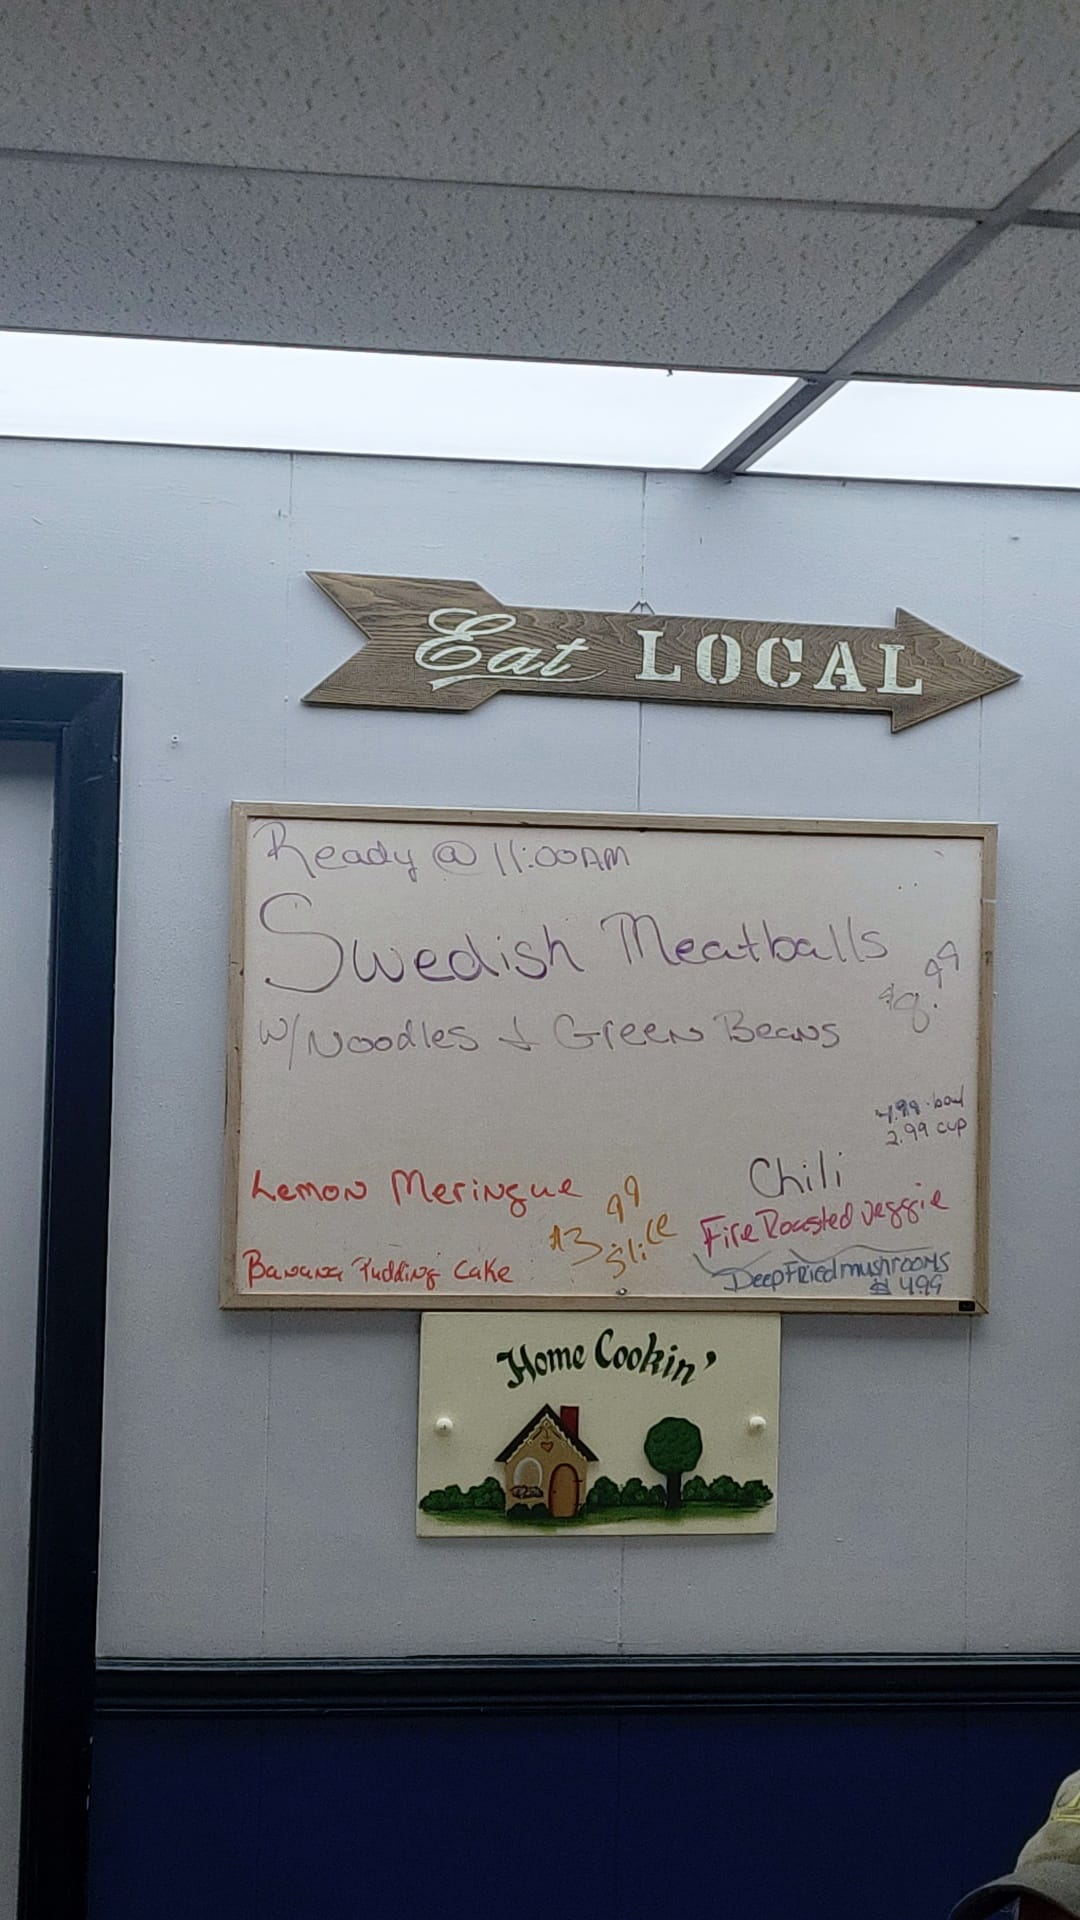 Eat LOCAL
Ready @ 11:00AM
Swedish Meatballs
$8.99
w/Noodles & Green Beans
4.99 bowl
2.99 cup
Lemon Meringue
Banana Pudding Cake
$3.99
slice
Chili
Fire Roasted veggie
Deep Fried mushrooms
$ 4.99
Home Cookin'